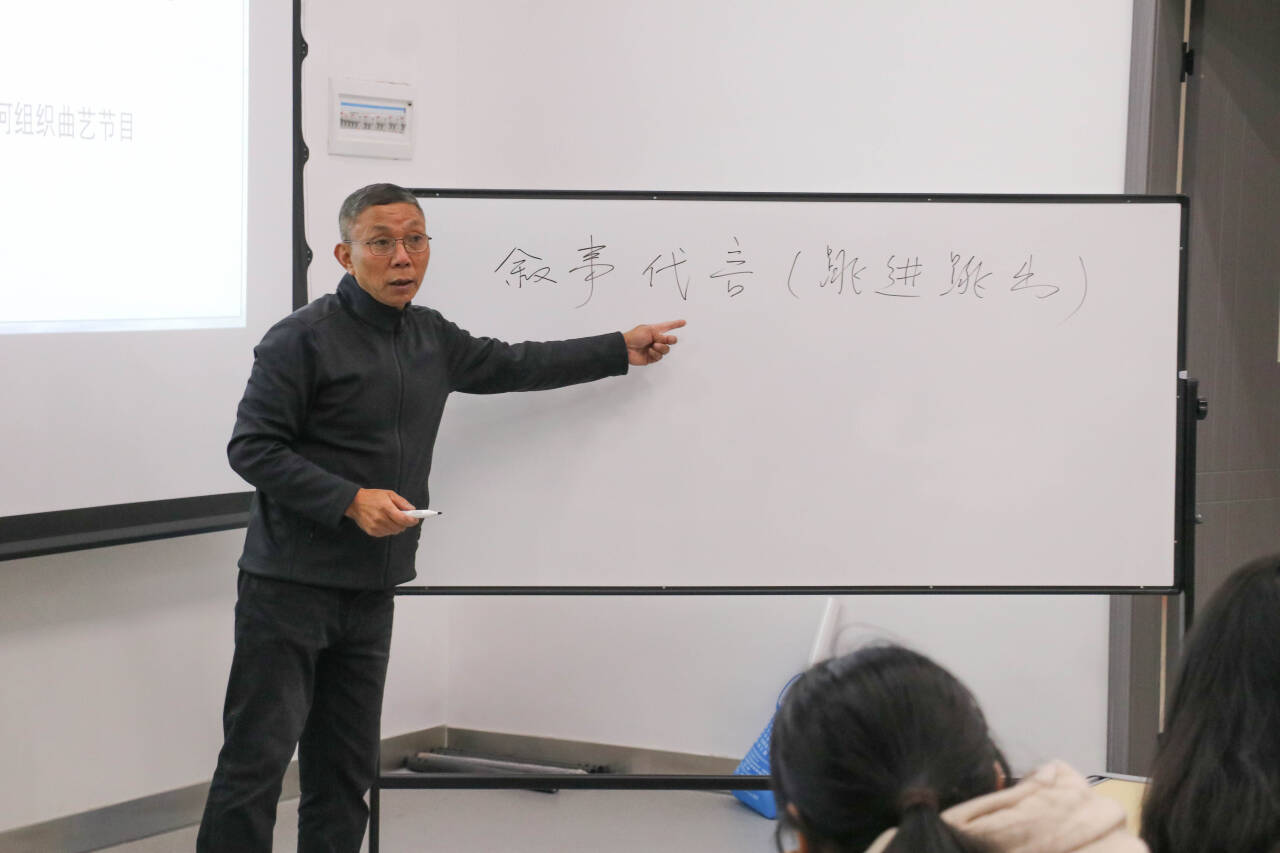 何组织曲艺节目
叙事代言(跳进跳出)